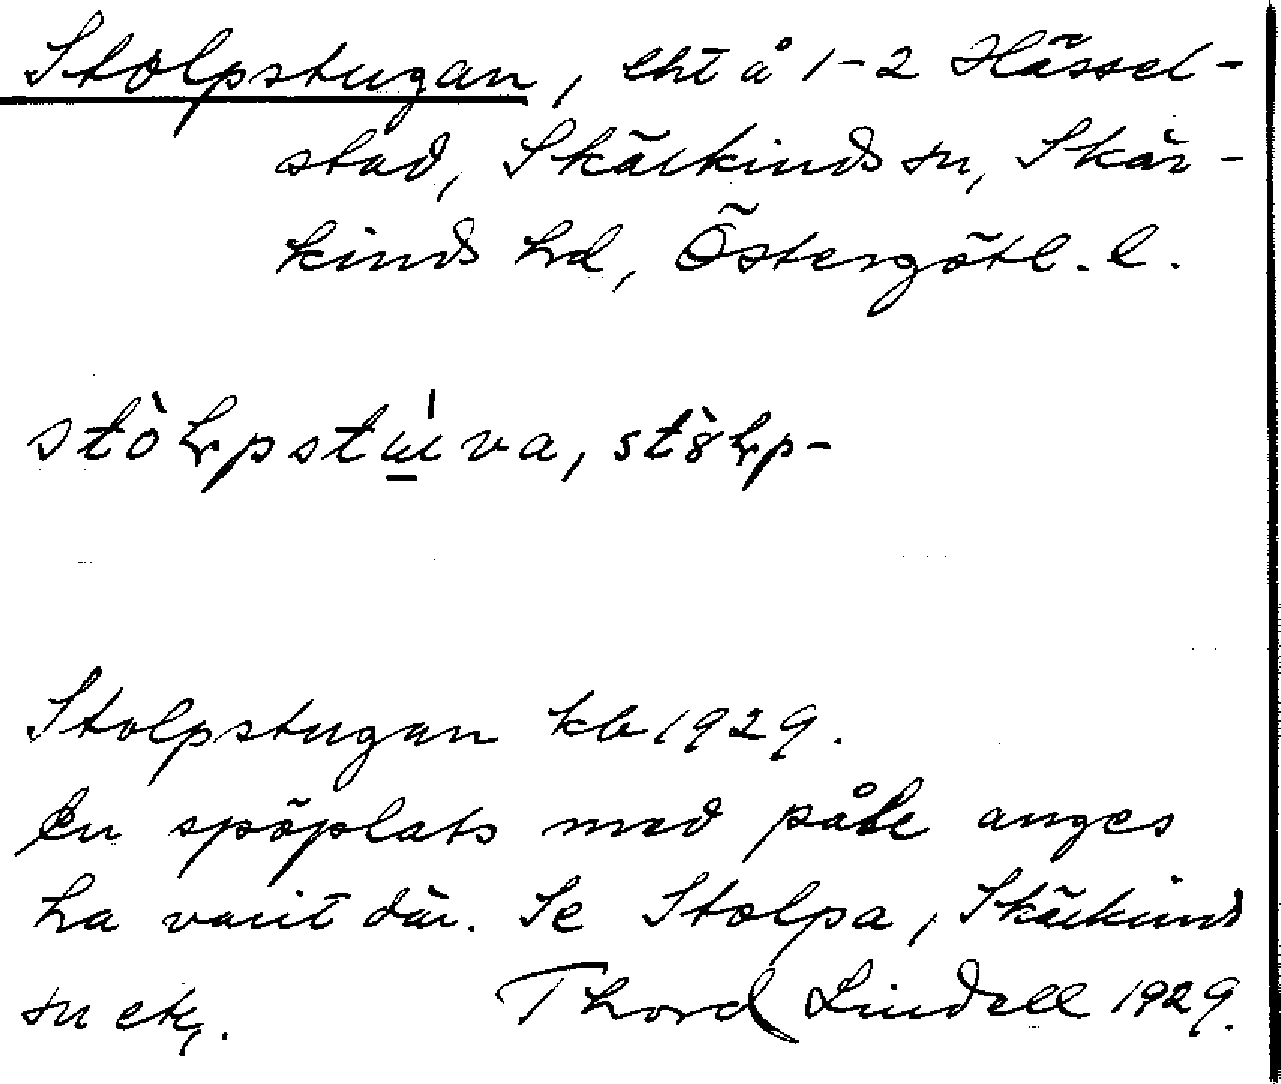 Stolpstugan, lht å 1-2 Hässel-
stad, Skärkinds sn, Skär-
kinds hd, Östergötl. l.
Stolpstugan kb 1929.
En spöplats med påle anges
ha varit där. Se Stolpa, Skärkinds
sn etc.
Thord Lindell 1929.